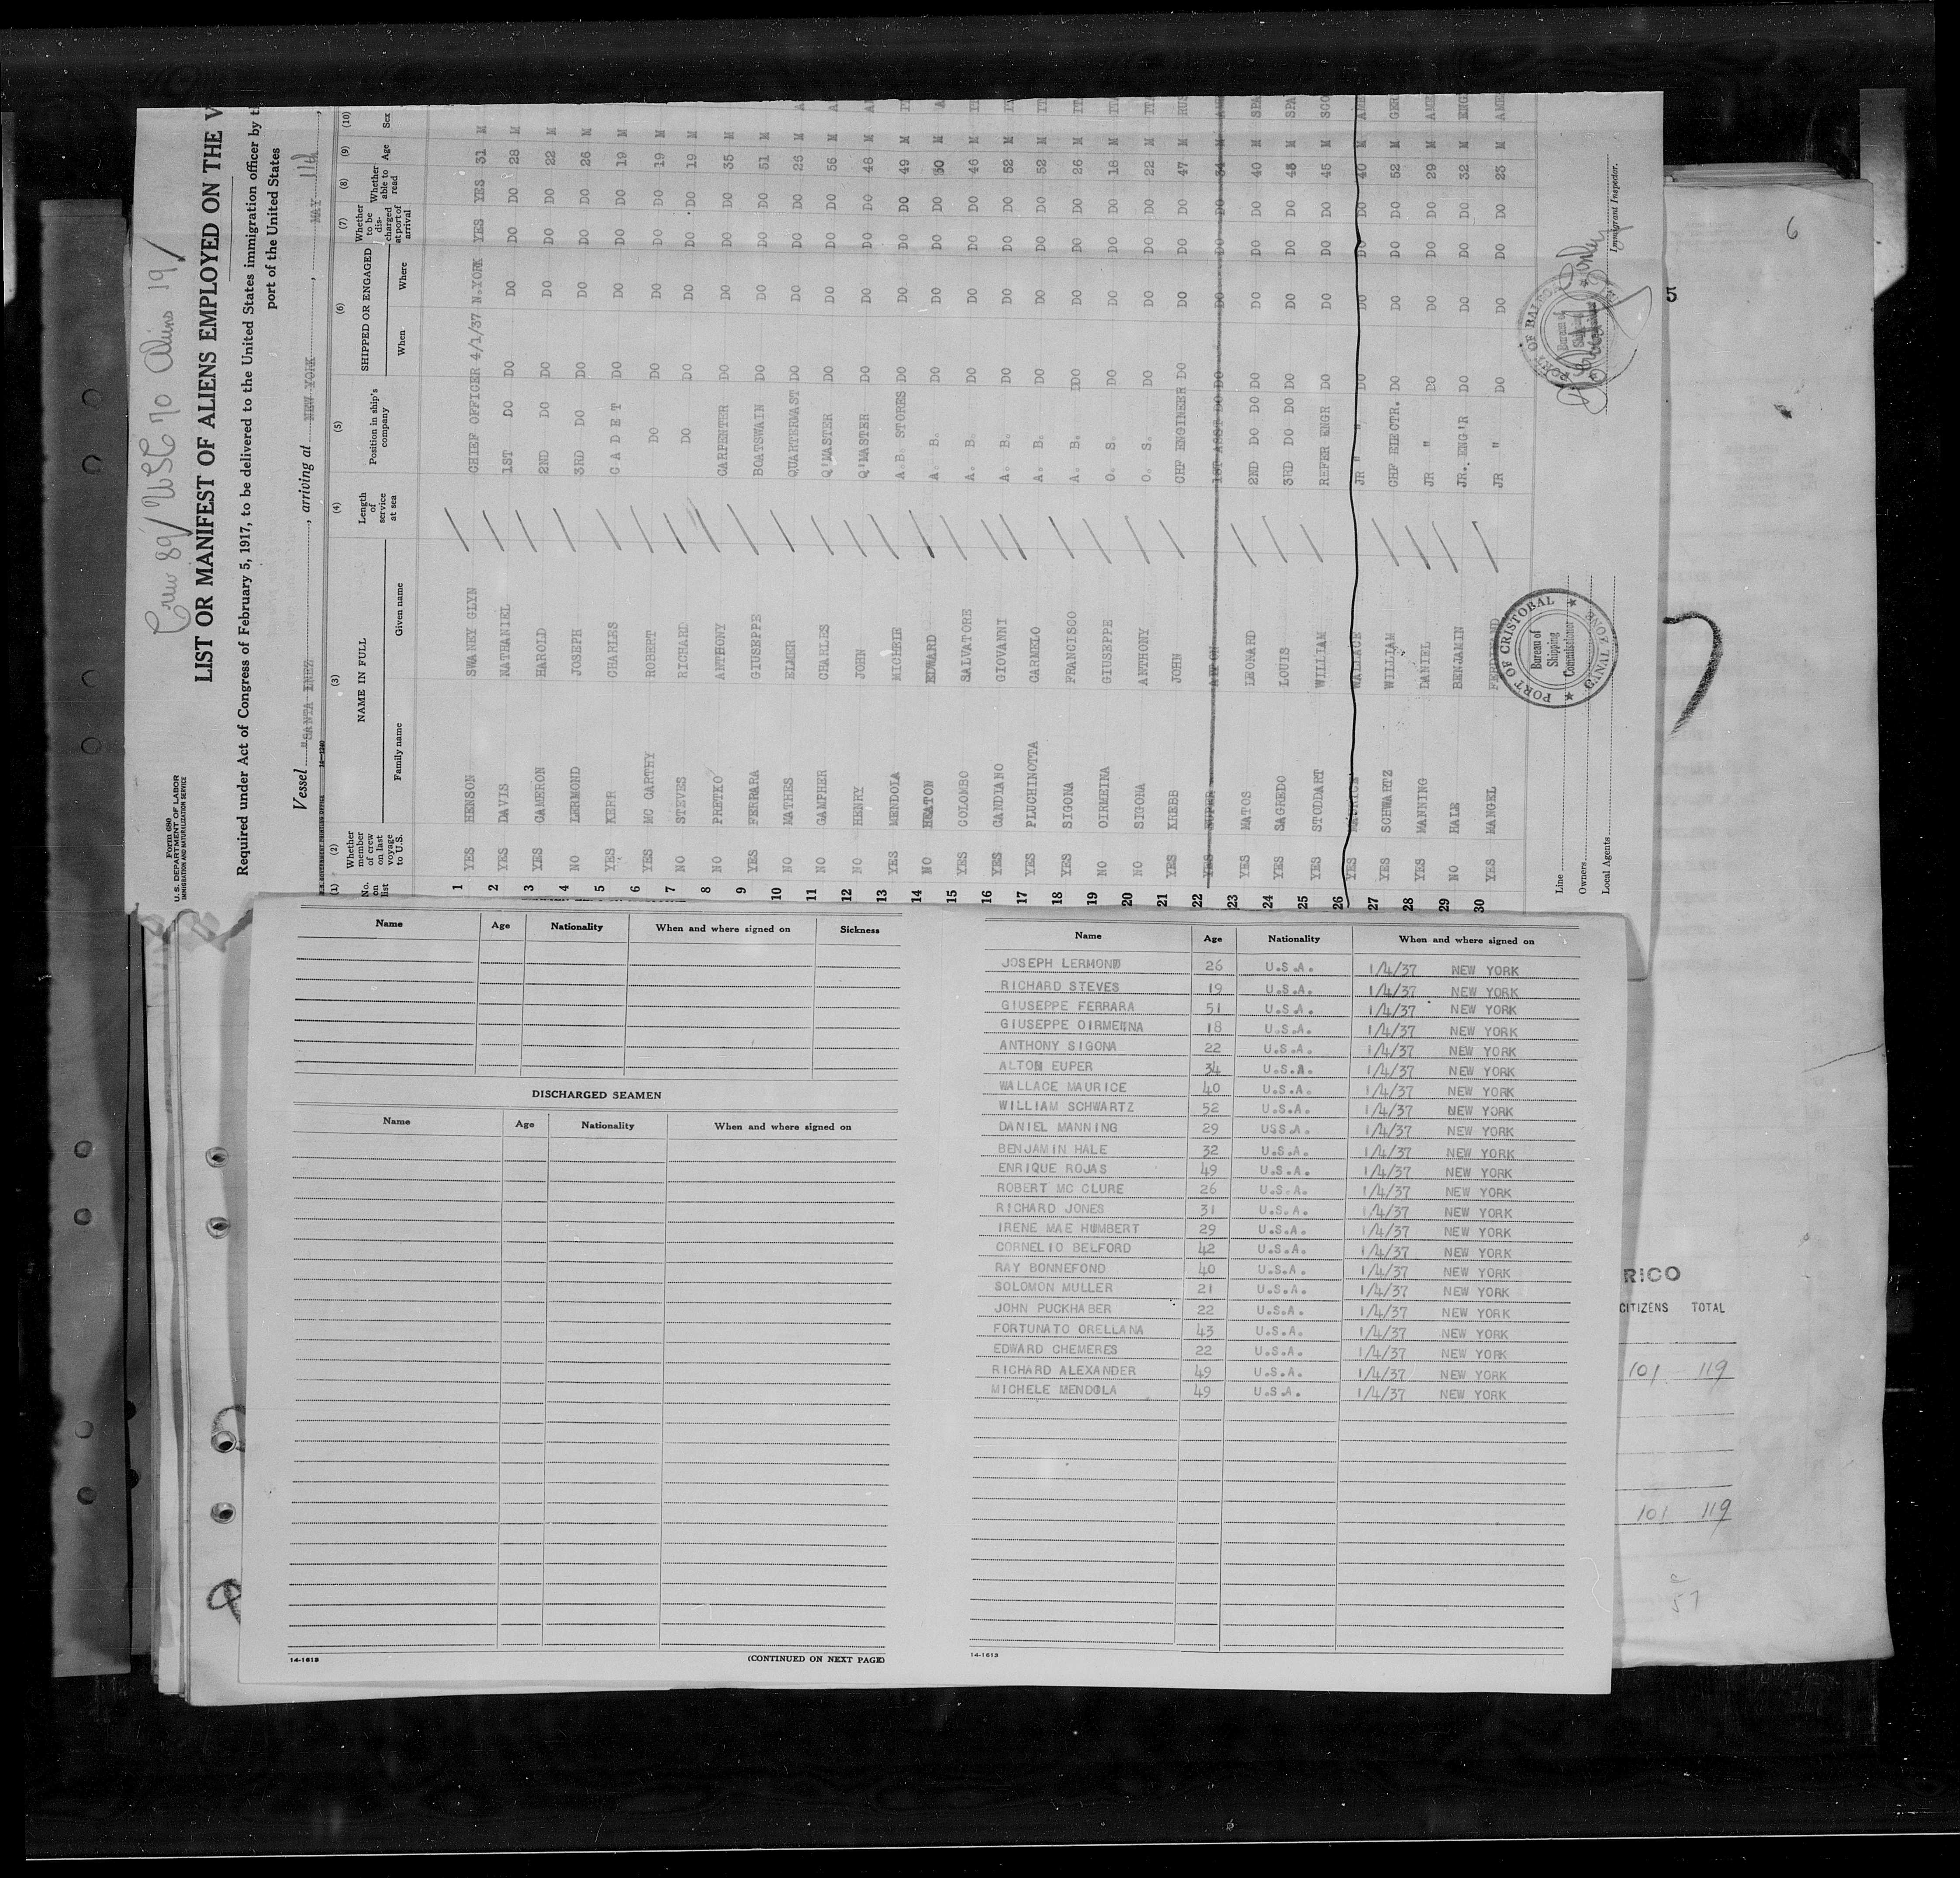 Crew 89/ USC 70 Aliens 19/
Form 680
U. S. DEPARTMENT OF LABOR
IMMIGRATION AND NATURALIZATION SERVICE
LIST OR MANIFEST OF ALIENS EMPLOYED ON THE V
Required under Act of Congress of February 5, 1917, to be delivered to the United States immigration officer by th
port of the United States
Vessel "SANTA INEZ", arriving at NEW YORK, MAY 11th,
(1) (2) (3) (4) (5) (6) (7) (8) (9) (10)
No. on list Whether member of crew on last voyage to U.S. NAME IN FULL Length of service at sea Position in ship's company SHIPPED OR ENGAGED Whether to be discharged at port of arrival Whether able to read Age Sex
Family name Given name When Where
1 YES HENSON SWANEY GLYN CHIEF OFFICER 4/1/37 N.YORK YES YES 31 M
2 YES DAVIS NATHANIEL 1ST DO DO DO DO DO 28 M
3 YES CAMERON HAROLD 2ND DO DO DO DO DO 22 M
4 NO LERMOND JOSEPH 3RD DO DO DO DO DO 26 M
5 YES KERR CHARLES C A D E T DO DO DO DO 19 M
6 YES MC CARTHY ROBERT DO DO DO DO DO 19 M
7 NO STEVES RICHARD DO DO DO DO DO 19 M
8 NO PRETKO ANTHONY CARPENTER DO DO DO DO 35 M
9 YES FERRARA GIUSEPPE BOATSWAIN DO DO DO DO 51 M
10 NO MATHES ELMER QUARTERMAST DO DO DO DO 26 M A
11 NO GAMPHER CHARLES Q'MASTER DO DO DO DO 56 M A
12 NO HENRY JOHN Q'MASTER DO DO DO DO 48 M A
13 YES MENDOLA MICHELE A.B. STORES DO DO DO DO 49 M IT
14 NO HEATON EDWARD A. B. DO DO DO DO 30 M A
15 YES COLOMBO SALVATORE A. B. DO DO DO DO 46 M IT
16 YES CANDIANO GIOVANNI A. B. DO DO DO DO 52 M IT
17 YES PLUCHINOTTA CARMELO A. B. DO DO DO DO 52 M IT
18 YES SIGONA FRANCISCO A. B. DO DO DO DO 26 M ITA
19 NO OIRMEINA GIUSEPPE O. S. DO DO DO DO 18 M ITA
20 NO SIGONA ANTHONY O. S. DO DO DO DO 22 M ITA
21 YES KREBB JOHN CHF ENGINEER DO DO DO DO 47 M RUS
22 YES EUPER ALTON 1ST ASST DO DO DO DO DO 34 M AME
23 YES MATOS LEONARD 2ND DO DO DO DO DO DO 40 M SPA
24 YES SAGREDO LOUIS 3RD DO DO DO DO DO DO 43 M SPA
25 YES STODDART WILLIAM REFER ENGR DO DO DO DO 45 M SCO
26 YES MAURICE WALLACE JR " " DO DO DO DO 40 M AME
27 YES SCHWARTZ WILLIAM CHF ELECTR. DO DO DO DO 52 M GER
28 YES MANNING DANIEL JR " DO DO DO DO 29 M AME
29 NO HALE BENJAMIN JR. ENG'R DO DO DO DO 32 M ENG
30 YES MANGEL FERDINAND JR " DO DO DO DO 23 M AME
Line
Owners
Local Agents
PORT OF CRISTOBAL
Bureau of
Shipping
Commissioner
CANAL ZONE
PORT OF BALBOA
Bureau of
Shipping
Immigrant Inspector.
5
6
Name Age Nationality When and where signed on Sickness
DISCHARGED SEAMEN
Name Age Nationality When and where signed on
14-1613 (CONTINUED ON NEXT PAGE)
Name Age Nationality When and where signed on
JOSEPH LERMOND 26 U.S.A. 1/4/37 NEW YORK
RICHARD STEVES 19 U.S.A. 1/4/37 NEW YORK
GIUSEPPE FERRARA 51 U.S.A. 1/4/37 NEW YORK
GIUSEPPE OIRMEINNA 18 U.S.A. 1/4/37 NEW YORK
ANTHONY SIGONA 22 U.S.A. 1/4/37 NEW YORK
ALTON EUPER 34 U.S.A. 1/4/37 NEW YORK
WALLACE MAURICE 40 U.S.A. 1/4/37 NEW YORK
WILLIAM SCHWARTZ 52 U.S.A. 1/4/37 NEW YORK
DANIEL MANNING 29 USS.A. 1/4/37 NEW YORK
BENJAMIN HALE 32 U.S.A. 1/4/37 NEW YORK
ENRIQUE ROJAS 49 U.S.A. 1/4/37 NEW YORK
ROBERT MC CLURE 26 U.S.A. 1/4/37 NEW YORK
RICHARD JONES 31 U.S.A. 1/4/37 NEW YORK
IRENE MAE HUMBERT 29 U.S.A. 1/4/37 NEW YORK
CORNELIO BELFORD 42 U.S.A. 1/4/37 NEW YORK
RAY BONNEFOND 40 U.S.A. 1/4/37 NEW YORK
SOLOMON MULLER 21 U.S.A. 1/4/37 NEW YORK
JOHN PUCKHABER 22 U.S.A. 1/4/37 NEW YORK
FORTUNATO ORELLANA 43 U.S.A. 1/4/37 NEW YORK
EDWARD CHEMERES 22 U.S.A. 1/4/37 NEW YORK
RICHARD ALEXANDER 49 U.S.A. 1/4/37 NEW YORK
MICHELE MENDOLA 49 U.S.A. 1/4/37 NEW YORK
14-1613
RICO
CITIZENS TOTAL
101 119
101 119